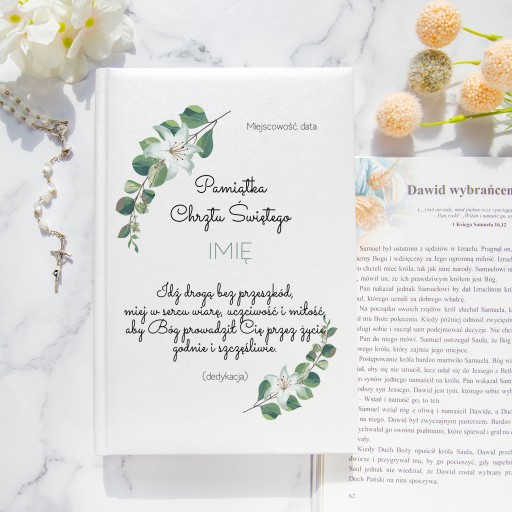 Miejscowość data
Pamiątka
Chrztu Świętego
IMIĘ
Idź drogą bez przeszkód,
miej w sercu wiarę, uczciwość i miłość,
aby Bóg prowadził Cię przez życie
godnie i szczęśliwie.
(dedykacja)
Dawid wybrańcem
1 Księga Samuela 16,12
Samuel był ostatnim z sędziów w Izraelu. Pragnął on,
ierny Bogu i wdzięczny za Jego ogromną miłość. Izraelici
to chcieli mieć króla, tak jak inne narody. Samuelowi
, mówił im, że ich prawdziwym królem jest Bóg.
Pan nakazał jednak Samuelowi by dał Izraelitom król
ul, którego uznali za dobrego władcę.
Na początku swoich rządów król słuchał Samuela, k
mu Boże polecenia. Kiedy później odnosił zwycięstw
sługi sobie i zaczął sam podejmować decyzje. Nie chci
Pan do niego mówi. Samuel ostrzegał Saula, że Bóg
wego króla, który zajmie jego miejsce.
Postępowanie króla bardzo martwiło Samuela. Bóg wi
ał, aby się nie smucił, lecz udał się do Jessego z Betl
o synów jednego namaścił na króla. Pan wskazał Samu
odszy syn Jessego, Dawid jest tym, którego sobie wybr
– Wstań i namaść go, to ten.
Samuel wziął róg z oliwą i namaścił Dawida, a Duch
na niego. Dawid był zwyczajnym pasterzem. Bardzo
ychwalał go swoimi psalmami, które śpiewał i grał na
vały.
Kiedy Duch Boży opuścił króla Saula, Dawid przeb
dworze i przygrywał mu, by go pocieszyć, gdy napełn
Saul jednak nie wiedział, że Dawid został wybrany
Duch Pański na nim spoczywa.
62